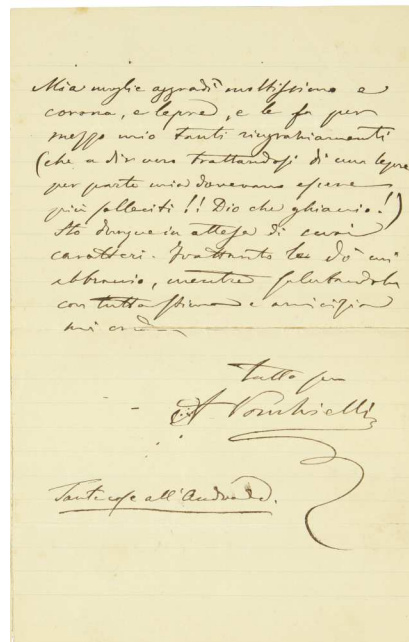 Mia moglie aggradì moltissimo e
corona, e lepre, e le fa per
mezzo mio tanti ringraziamenti
(che a dir vero trattandosi di una lepre
per parte mia dovevano essere
più solleciti!! Dio che ghiaccio!)
Sto dunque in attesa di suoi
caratteri. Frattanto le dò un
abbraccio, mentre salutandola
con tutta stima e amicizia
mi
Tutto suo
A Ponchielli
Tante cose all'